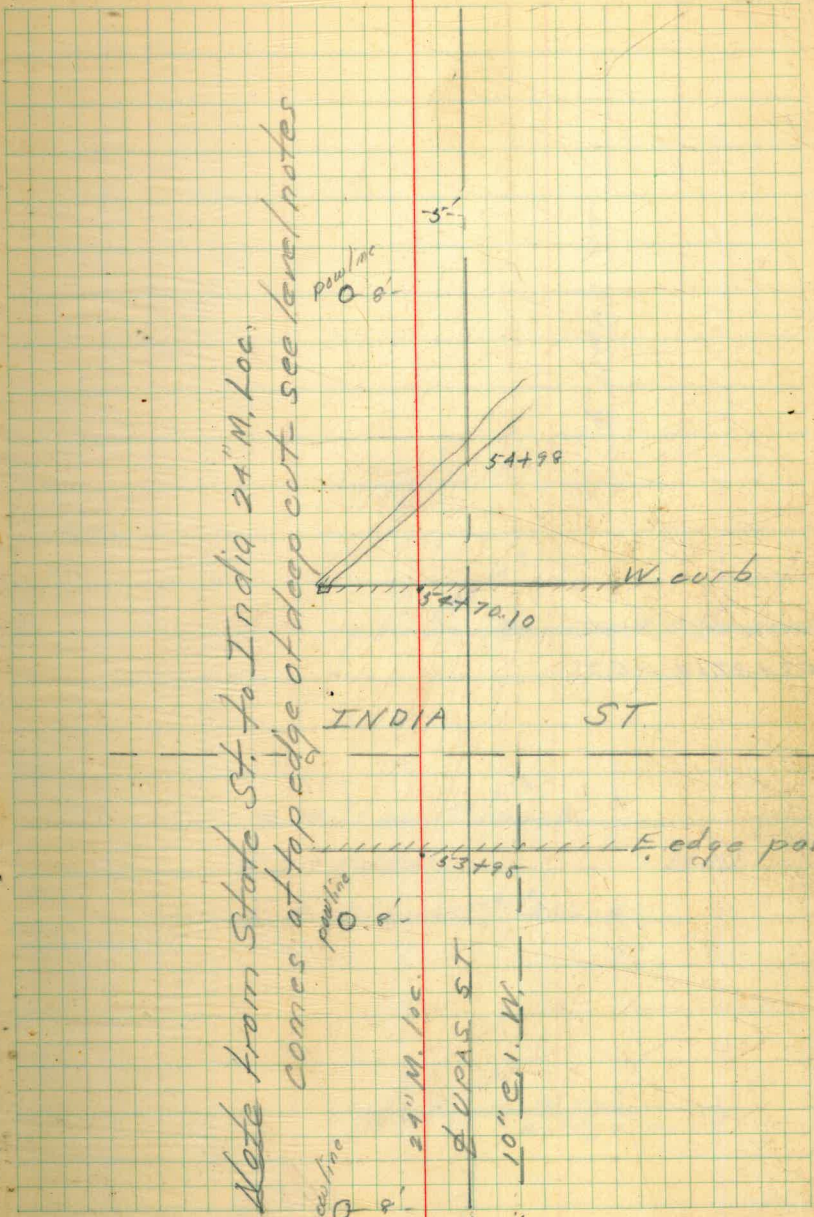 Note from State St. to India 24" M. Loc.
Comes at top edge of deep cut - see level notes
powline
8'
5'
54+98
W. curb
54+70.10
INDIA ST.
E. edge
53+95
powline
8'
24" M. loc.
℄ UPAS ST.
10" C. I. W.
8'